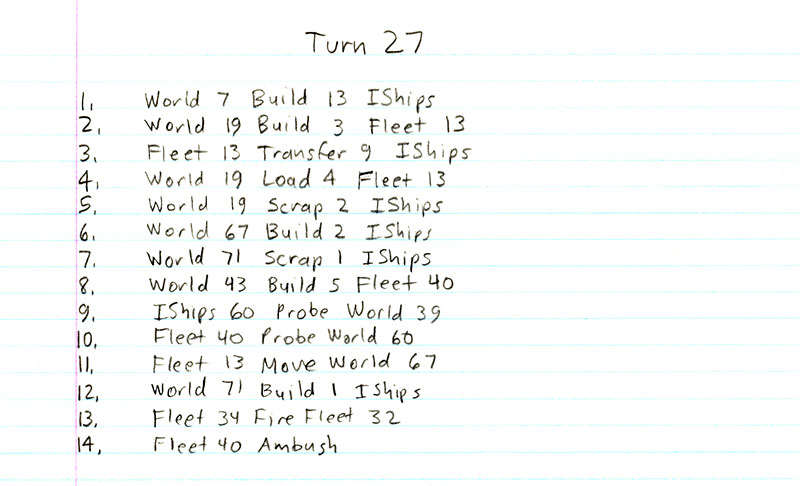 Turn 27
1. World 7 Build 13 IShips
2. World 19 Build 3 Fleet 13
3. Fleet 13 Transfer 9 IShips
4. World 19 Load 4 Fleet 13
5. World 19 Scrap 2 IShips
6. World 67 Build 2 IShips
7. World 71 Scrap 1 IShips
8. World 43 Build 5 Fleet 40
9. IShips 60 Probe World 39
10. Fleet 40 Probe World 60
11. Fleet 13 Move World 67
12. World 71 Build 1 IShips
13. Fleet 34 Fire Fleet 32
14. Fleet 40 Ambush